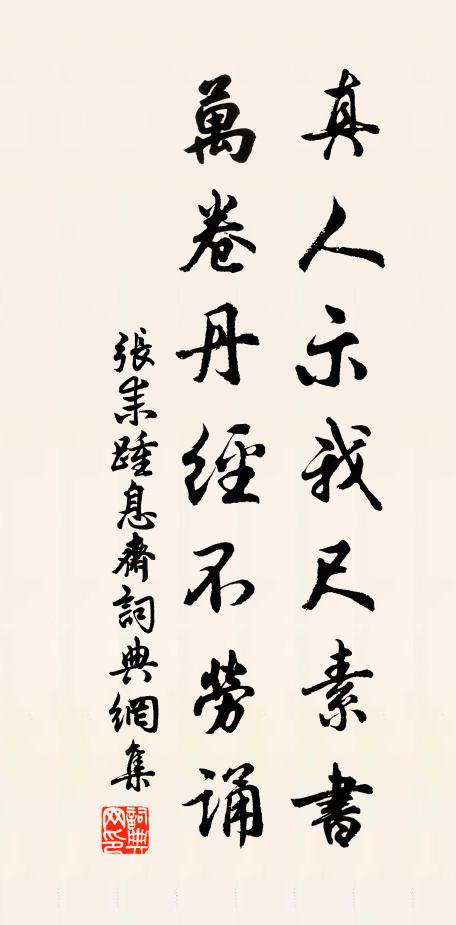 真人示我尺素書
萬卷丹經不勞誦
張耒踵息齋詞典網集
詞典网印